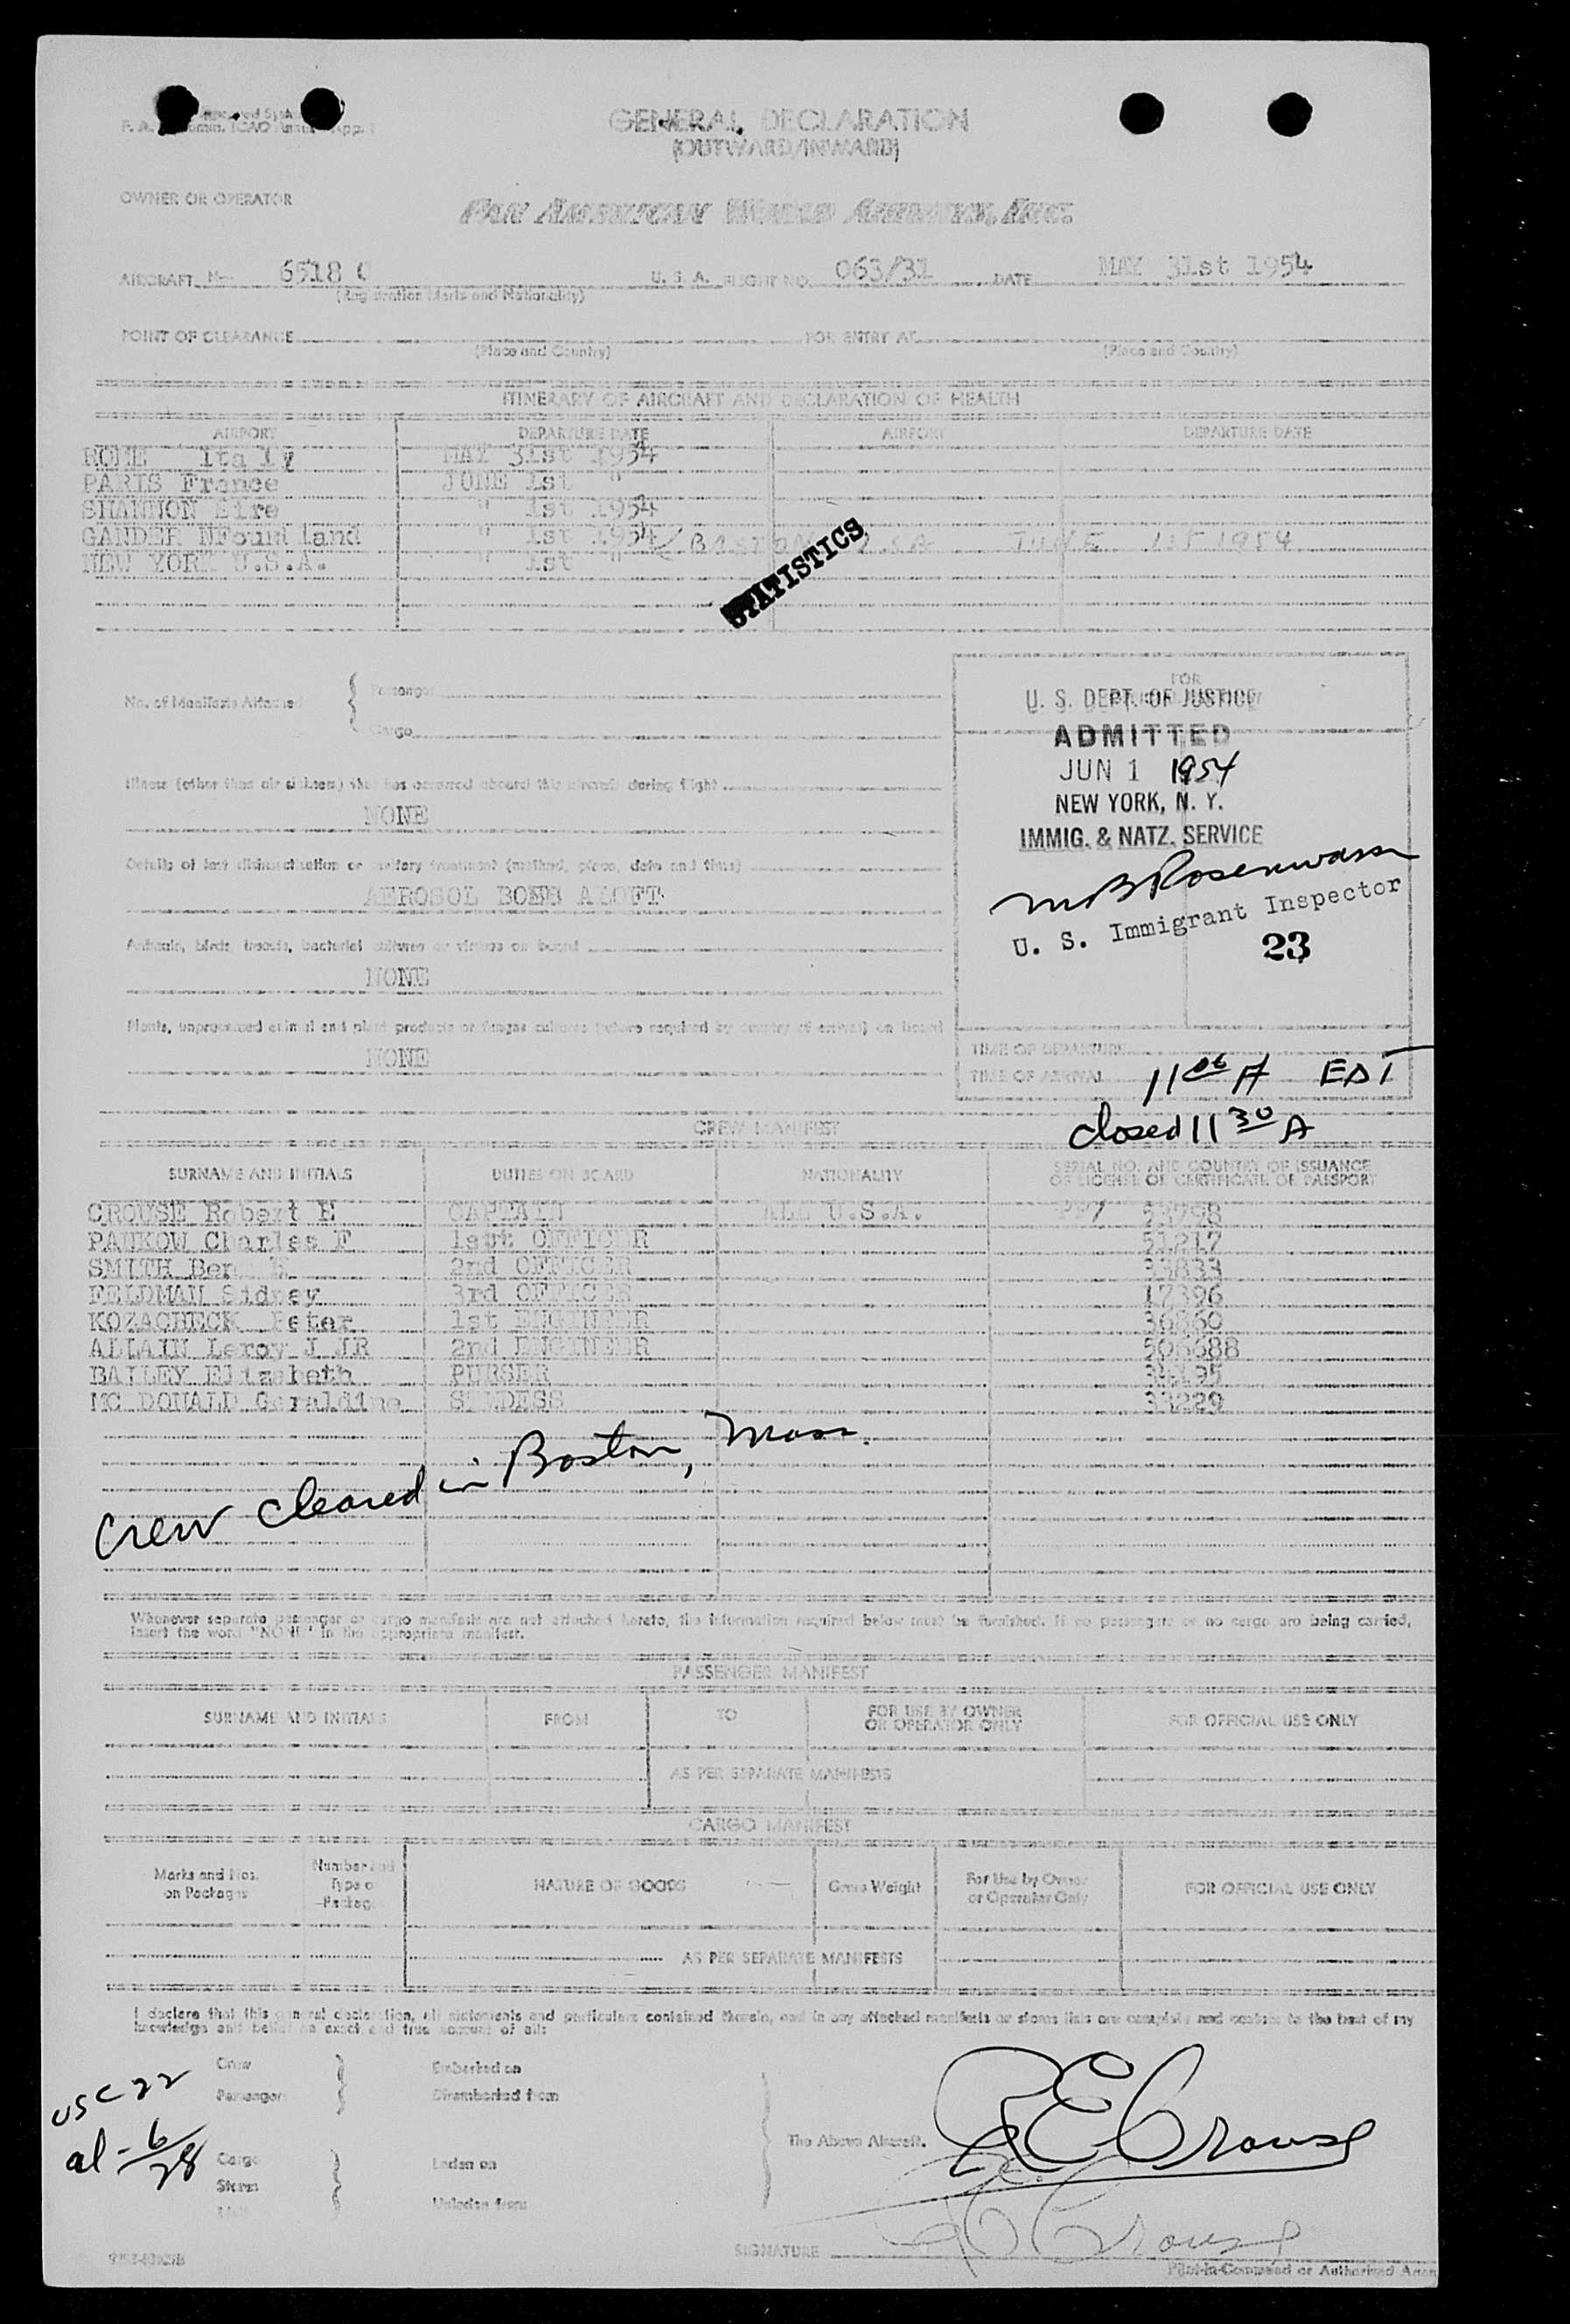 GENERAL DECLARATION
(OUTWARD/INWARD)
OWNER OR OPERATOR
PAN AMERICAN WORLD AIRWAYS, INC.
AIRCRAFT N- 6518 C U. S. A. FLIGHT NO. 063/31 DATE MAY 31st 1954
(Registration Marks and Nationality)
POINT OF CLEARANCE FOR ENTRY AT
(Place and Country) (Place and Country)
ITINERARY OF AIRCRAFT AND DECLARATION OF HEALTH
AIRPORT DEPARTURE DATE AIRPORT DEPARTURE DATE
ROME Italy MAY 31st 1954
PARIS France JUNE 1st "
SHANNON Eire " 1st 1954
GANDER NFound land " 1st 1954 BOSTON USA JUNE 1st 1954
NEW YORK U.S.A. " 1st "
STATISTICS
No. of Manifests Attached
Passenger
Cargo
FOR
U. S. DEPT. OF JUSTICE
ADMITTED
JUN 1 1954
NEW YORK, N. Y.
IMMIG. & NATZ. SERVICE
U. S. Immigrant Inspector
23
Illness (other than air sickness) that has occurred aboard this aircraft during flight
NONE
Details of last disinsectisation or sanitary treatment (method, place, date and time)
AEROSOL BOMB ALOFT
Animals, birds, insects, bacterial cultures or viruses on board
NONE
Plants, unprocessed animal and plant products or fungus cultures (where required by country of arrival) on board
NONE
TIME OF DEPARTURE
TIME OF ARRIVAL 11 06 A EDT
closed 11 30 A
CREW MANIFEST
SURNAME AND INITIALS DUTIES ON BOARD NATIONALITY SERIAL NO. AND COUNTRY OF ISSUANCE OF LICENSE OR CERTIFICATE OR PASSPORT
CROUSE Robert E CAPTAIN ALL U.S.A.
PANKOW Charles F 1st OFFICER 51217
SMITH Ben 2nd OFFICER 33833
FELDMAN Sidney 3rd OFFICER 17396
KOZACHECK Peter 1st ENGINEER 36860
ALLAIN Leroy J JR 2nd ENGINEER 506688
BAILEY Elizabeth PURSER
MC DONALD Geraldine STWDESS 33229
Crew cleared in Boston, Mass.
Whenever separate passenger or cargo manifests are not attached hereto, the information required below must be furnished. If no passengers or no cargo are being carried,
insert the word "NONE" in the appropriate manifest.
PASSENGER MANIFEST
SURNAME AND INITIALS FROM TO FOR USE BY OWNER OR OPERATOR ONLY FOR OFFICIAL USE ONLY
AS PER SEPARATE MANIFESTS
CARGO MANIFEST
Marks and Nos. on Packages Number and Type of Package NATURE OF GOODS Gross Weight For Use by Owner or Operator Only FOR OFFICIAL USE ONLY
AS PER SEPARATE MANIFESTS
I declare that this general declaration, all statements and particulars contained therein, and in any attached manifests or stores lists are complete and contain to the best of my
knowledge and belief an exact and true account of all:
Crew Embarked on
Passengers Disembarked from
USC 22
al - 6
28
The Above Aircraft.
Cargo Laden on
Stores
Mail Unladen from
R E Crouse
R E Crouse
SIGNATURE
Pilot-in-Command or Authorized Agent